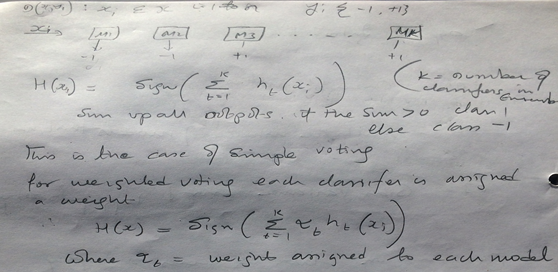 D(xi, yi) : xi ∈ x i = 1 to n yi { -1, +1}
xi → [M1] [M2] [M3] . . . . . [MK]
-1 -1 +1 +1
H(xi) = Sign( Σ_{t=1}^{K} h_t(xi) ) ( K = number of
classifiers in
Sum up all outputs. if the sum > 0 class 1
else class -1
This is the case of simple voting
for weighted voting each classifier is assigned
a weight
H(x) = Sign( Σ_{t=1}^{K} α_t h_t(xi) )
where α_t = weight assigned to each model